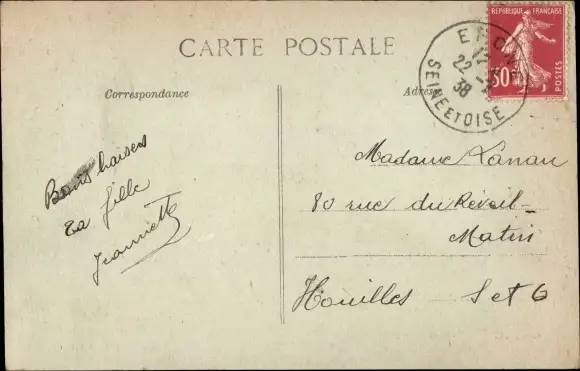 CARTE POSTALE
Correspondance
Adresse
REPUBLIQUE FRANÇAISE
30c
POSTES
22
38
SEINE ET OISE
Bons baisers
ta fille
Jeannette
Madame Kanau
80 rue du Réveil-
Matin
Houilles S et O